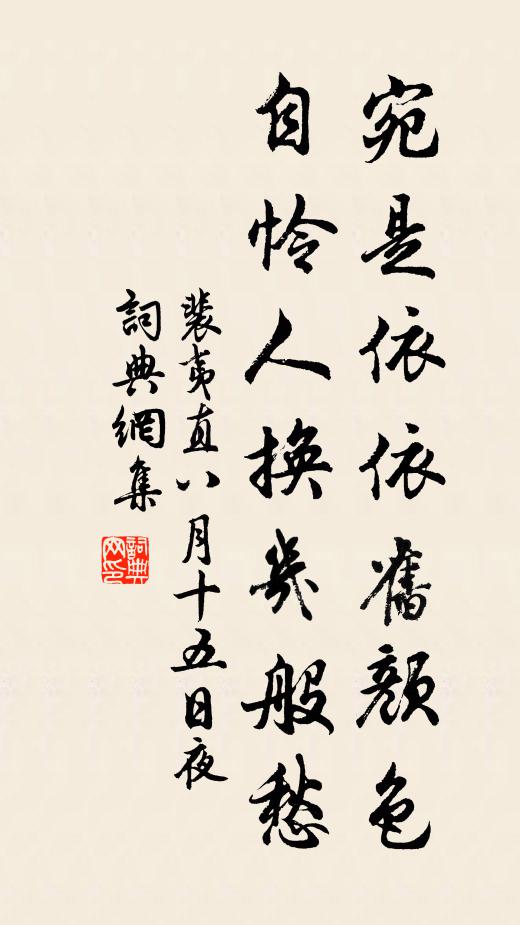 宛是依依舊顏色
自怜人換幾般愁
裴夷直八月十五日夜
詞典網集
詞典网印